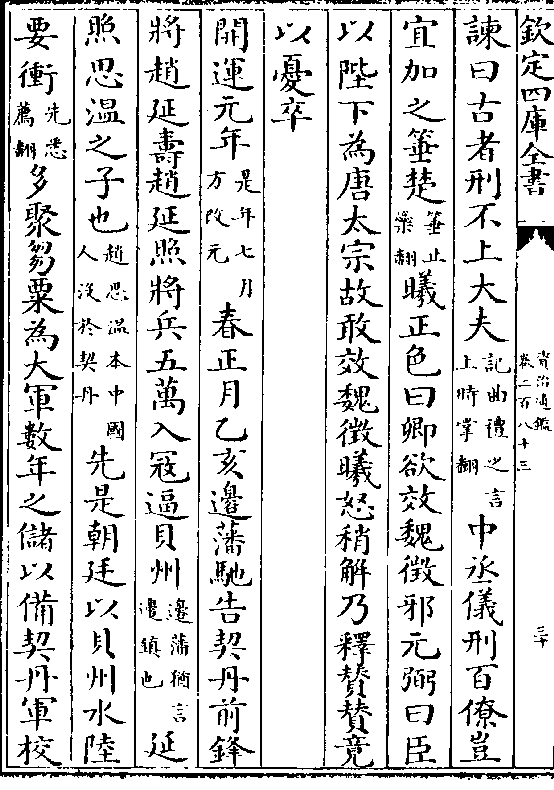 欽定四庫全書
資治通鑑
卷二百八十三
三十
諫曰古者刑不上大夫記曲禮之言上時掌翻中丞儀刑百僚豈
宜加之箠楚箠止橤翻曦正色曰卿欲效魏徵邪元弼曰臣
以陛下為唐太宗故敢效魏徵曦怒稍解乃釋贊贊竟
以憂卒
開運元年是年七月方改元春正月乙亥邊藩馳告契丹前鋒
將趙延壽趙延照將兵五萬入冦逼貝州邊藩猶言邊鎮也延
照思溫之子也趙思溫本中國人沒於契丹先是朝廷以貝州水陸
要衝先悉薦翻多聚芻粟為大軍數年之儲以備契丹軍校